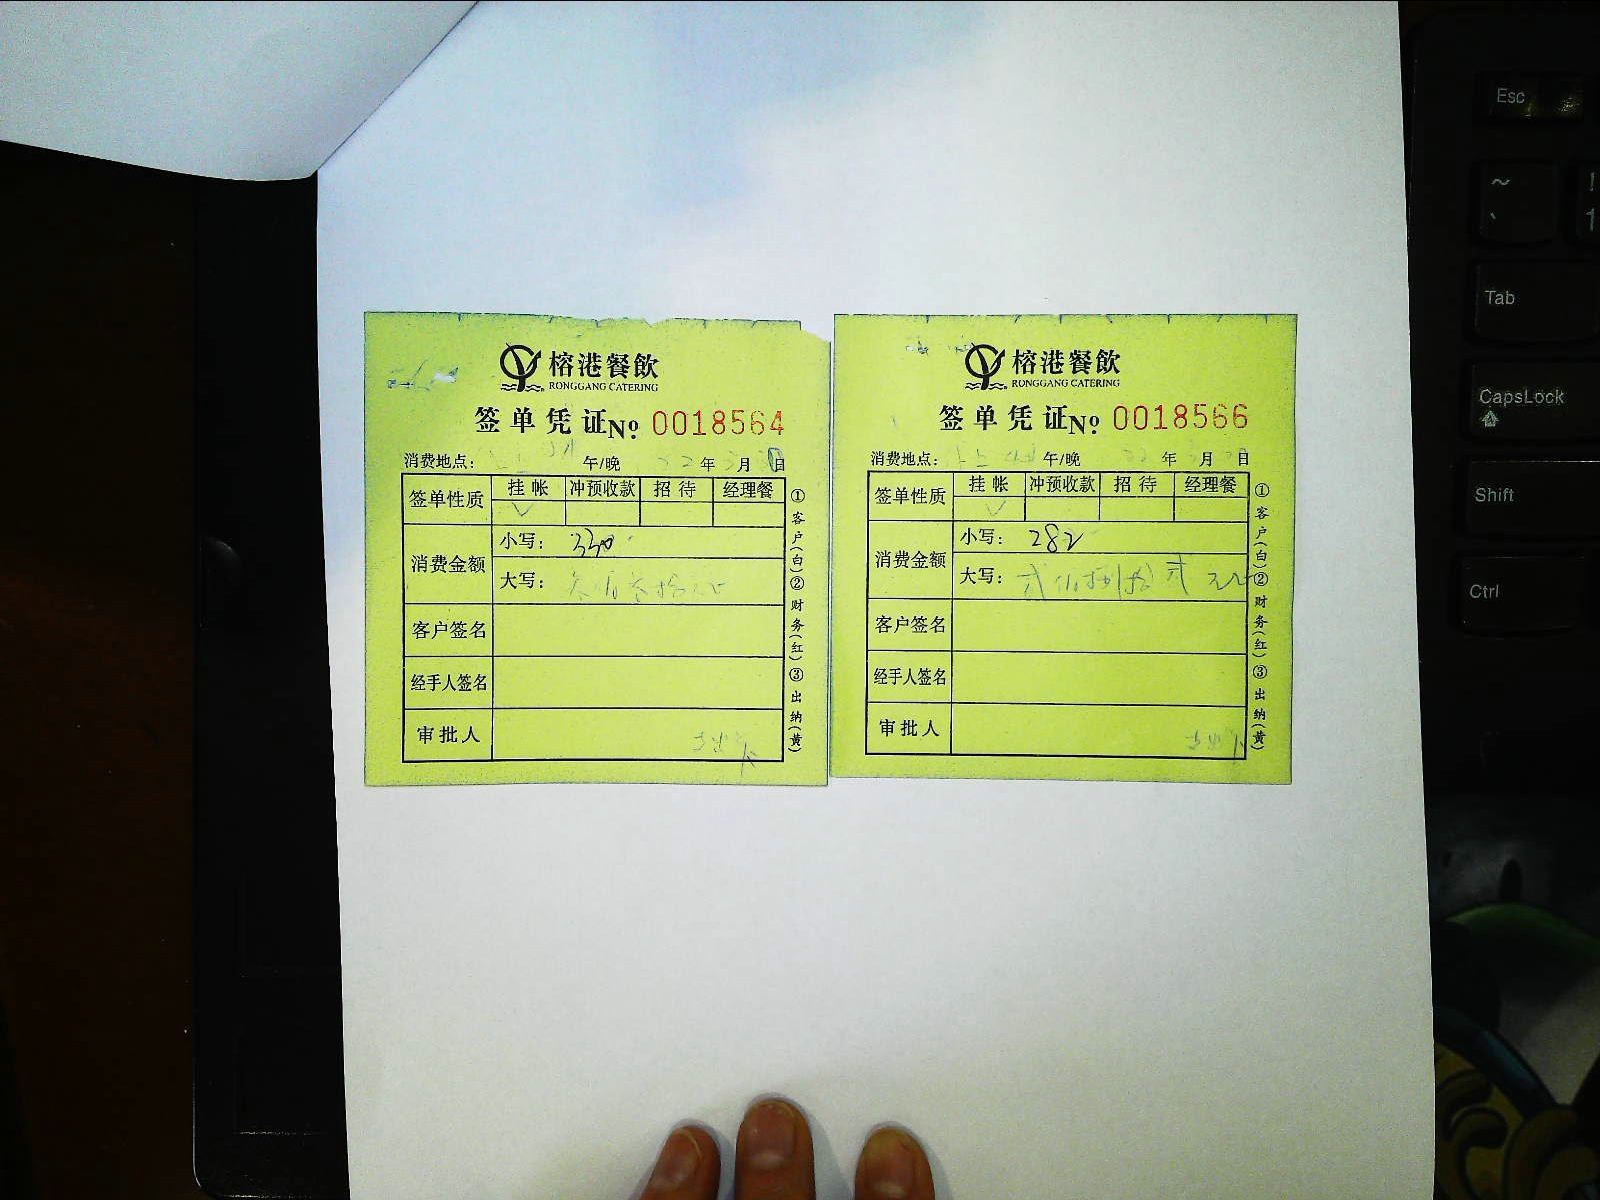 榕港餐飲
RONGGANG CATERING
签单凭证 No. 0018564
消费地点： 午/晚 22年3月 日
签单性质 挂帐 冲预收款 招待 经理餐
✓
消费金额 小写： 330
大写： 叁佰叁拾元
客户签名
经手人签名
审批人
①客户(白)②财务(红)③出纳(黄)
榕港餐飲
RONGGANG CATERING
签单凭证 No. 0018566
消费地点： 午/晚 22年 月 日
签单性质 挂帐 冲预收款 招待 经理餐
✓
消费金额 小写： 282
大写： 贰佰捌拾贰元
客户签名
经手人签名
审批人
①客户(白)②财务(红)③出纳(黄)
Esc
~
`
!
1
Tab
CapsLock
Shift
Ctrl